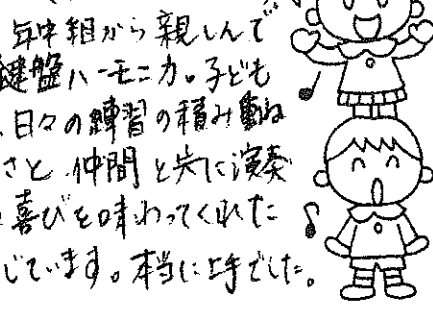 年中組から親しんで
鍵盤ハーモニカ。子ども
、日々の練習の積み重ね
さと、仲間と共に演奏
喜びを味わってくれた
じています。本当に上手でした。